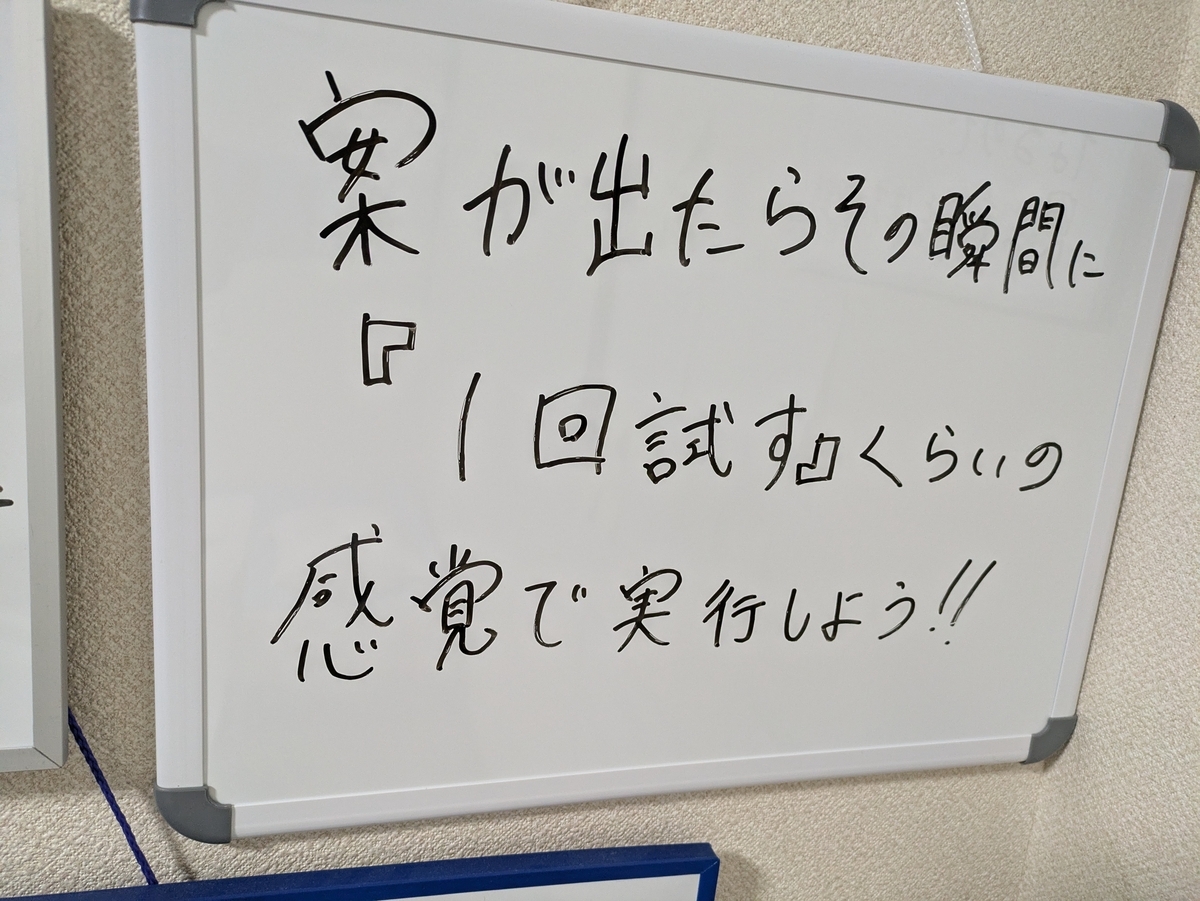 案が出たらその瞬間に
『1回試す』くらいの
感覚で実行しよう!!